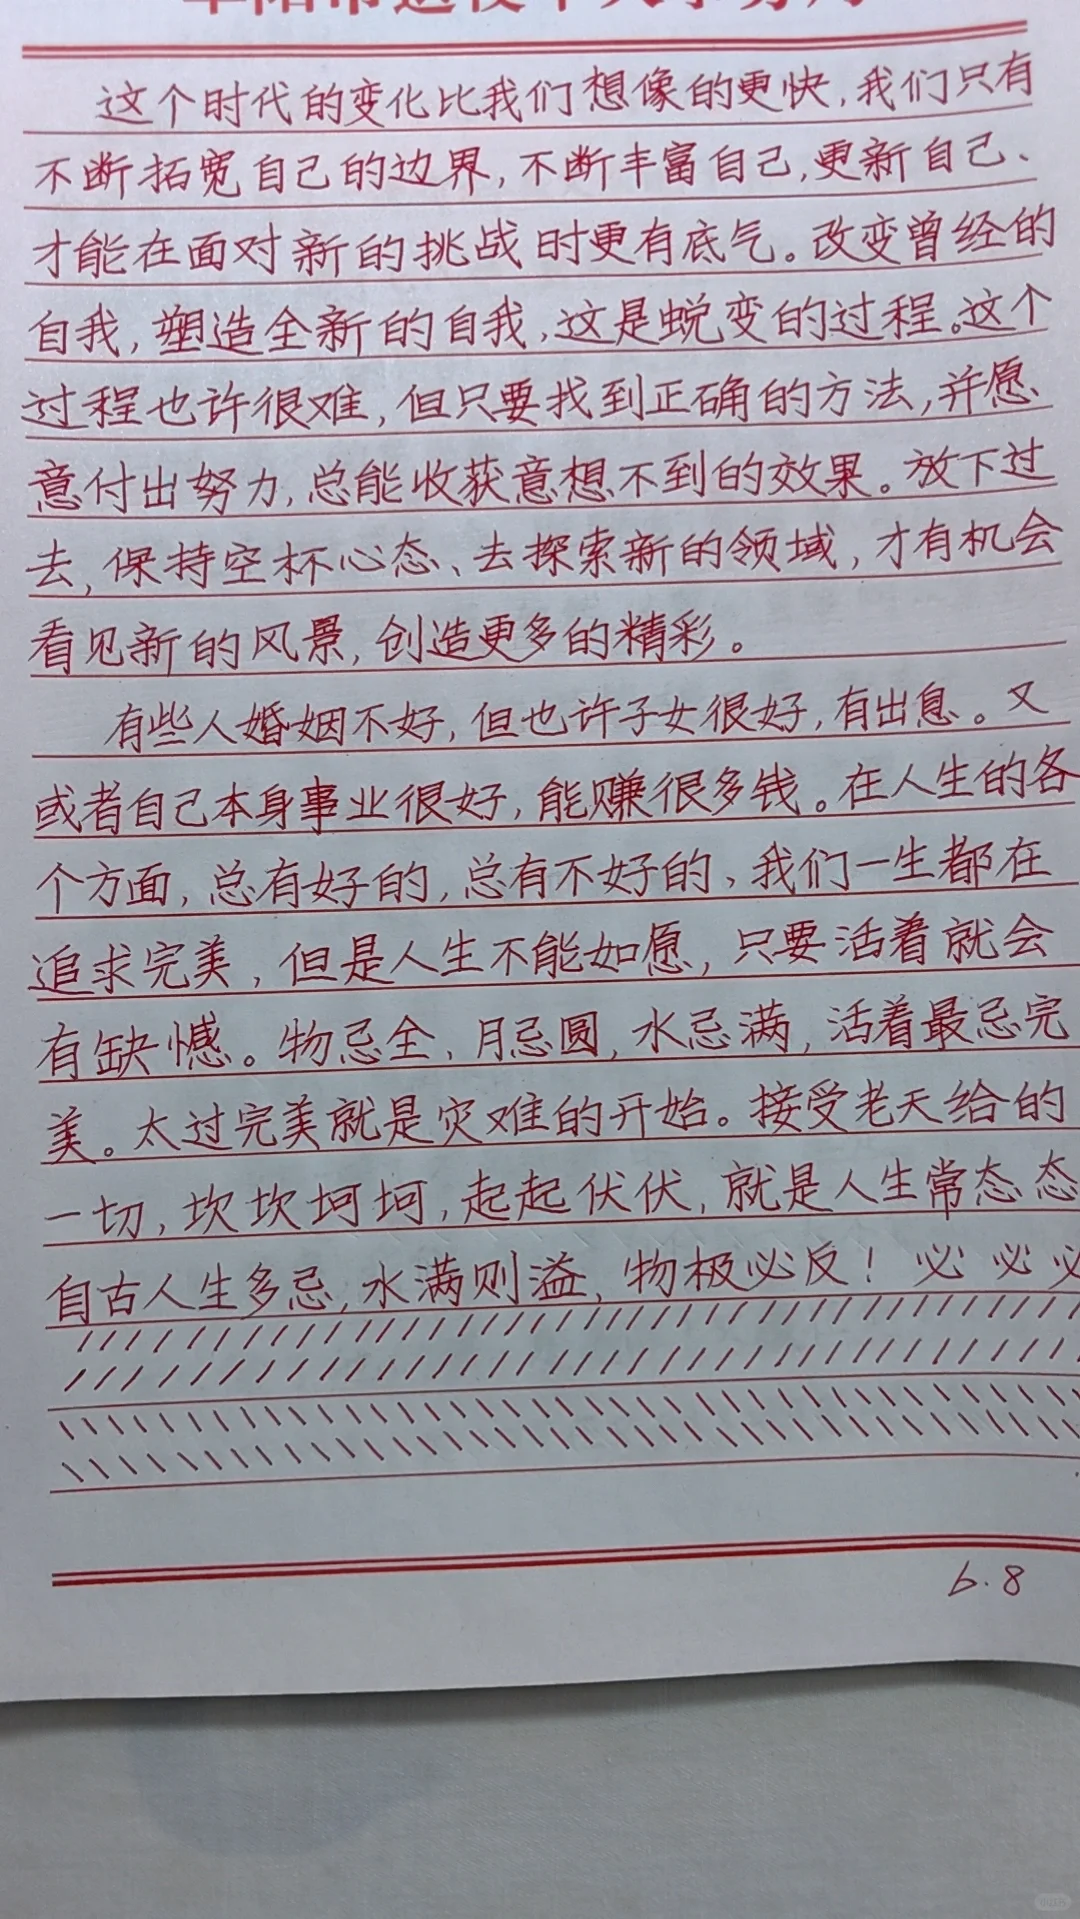 这个时代的变化比我们想像的更快,我们只有
不断拓宽自己的边界,不断丰富自己,更新自己、
才能在面对新的挑战时更有底气。改变曾经的
自我,塑造全新的自我,这是蜕变的过程。这个
过程也许很难,但只要找到正确的方法,并愿
意付出努力,总能收获意想不到的效果。放下过
去,保持空杯心态、去探索新的领域,才有机会
看见新的风景,创造更多的精彩。
有些人婚姻不好,但也许子女很好,有出息。又
或者自己本身事业很好,能赚很多钱。在人生的各
个方面,总有好的,总有不好的、我们一生都在
追求完美,但是人生不能如愿,只要活着就会
有缺憾。物忌全、月忌圆,水忌满,活着最忌完
美。太过完美就是灾难的开始。接受老天给的
一切,坎坎坷坷,起起伏伏,就是人生常态 态
自古人生多忌,水满则溢,物极必反!必 必 必
6.8